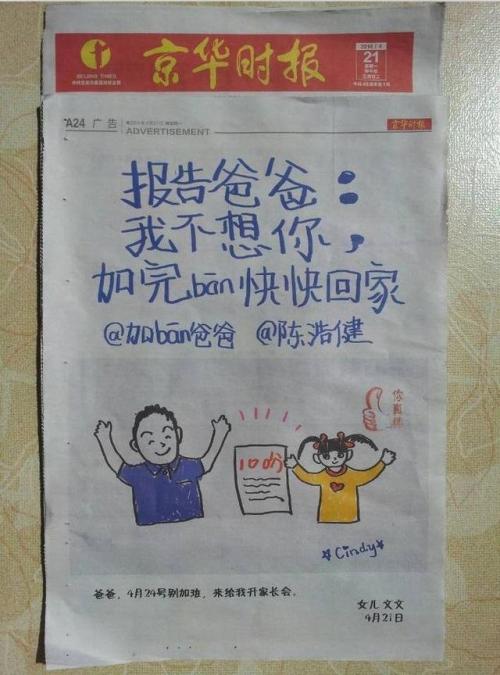 京华时报
BEIJING TIMES
21
A24 广告
ADVERTISEMENT
京华时报
报告爸爸：
我不想你，
加完bān快快回家
@加bān爸爸 @陈浩健
你真棒
100分
☆Cindy☆
爸爸，4月24号别加难，来给我开家长会。
女儿 文文
4月21日